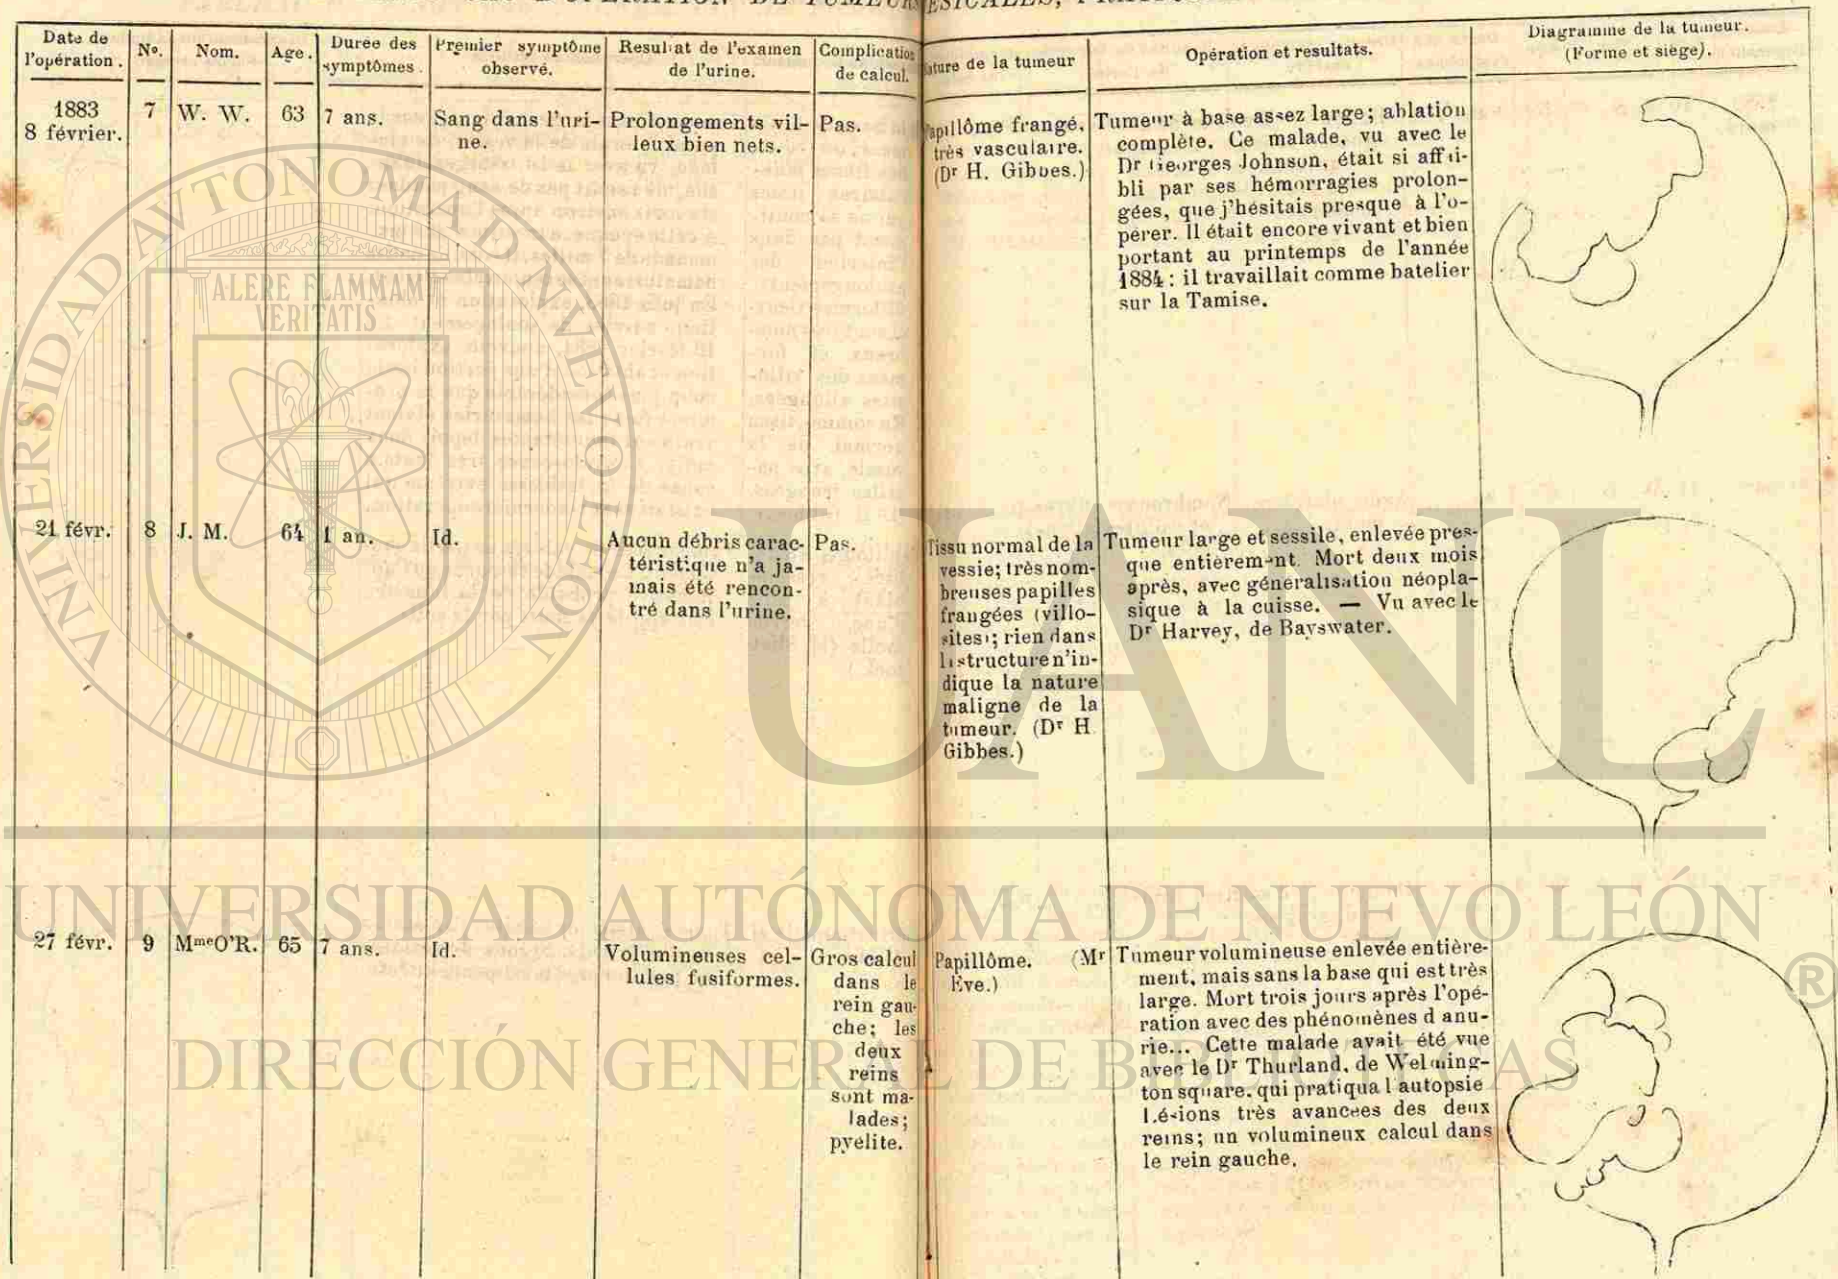 D'OPÉRATION DE TUMEURS VESICALES,
Date de
l'opération.
No.
Nom.
Age.
Durée des
symptômes.
Premier symptôme
observé.
Resultat de l'examen
de l'urine.
Complication
de calcul.
Nature de la tumeur
Opération et resultats.
Diagramme de la tumeur.
(Forme et siège).
1883
8 février.
7
W. W.
63
7 ans.
Sang dans l'uri-
ne.
Prolongements vil-
leux bien nets.
Pas.
Papillôme frangé,
très vasculaire.
(Dr H. Gibbes.)
Tumeur à base assez large; ablation
complète. Ce malade, vu avec le
Dr Georges Johnson, était si affai-
bli par ses hémorragies prolon-
gées, que j'hésitais presque à l'o-
pérer. Il était encore vivant et bien
portant au printemps de l'année
1884: il travaillait comme batelier
sur la Tamise.
21 févr.
8
J. M.
64
1 an.
Id.
Aucun débris carac-
téristique n'a ja-
mais été rencon-
tré dans l'urine.
Pas.
Tissu normal de la
vessie; très nom-
breuses papilles
frangées (villo-
sites); rien dans
la structure n'in-
dique la nature
maligne de la
tumeur. (Dr H
Gibbes.)
Tumeur large et sessile, enlevée pres-
que entièrement. Mort deux mois
après, avec géneralisation néopla-
sique à la cuisse. — Vu avec le
Dr Harvey, de Bayswater.
27 févr.
9
Mme O'R.
65
7 ans.
Id.
Volumineuses cel-
lules fusiformes.
Gros calcul
dans le
rein gau-
che; les
deux
reins
sont ma-
lades;
pyélite.
Papillôme. (Mr
Eve.)
Tumeur volumineuse enlevée entière-
ment, mais sans la base qui est très
large. Mort trois jours après l'opé-
ration avec des phénomènes d anu-
rie... Cette malade avait été vue
avec le Dr Thurland, de Welming-
ton square, qui pratiqua l autopsie
Lésions très avancées des deux
reins; un volumineux calcul dans
le rein gauche.
UNIVERSIDAD AUTONOMA DE NUEVO LEON
ALERE FLAMMAM
VERITATIS
UANL
UNIVERSIDAD AUTÓNOMA DE NUEVO LEÓN
®
DIRECCIÓN GENERAL DE BIBLIOTECAS